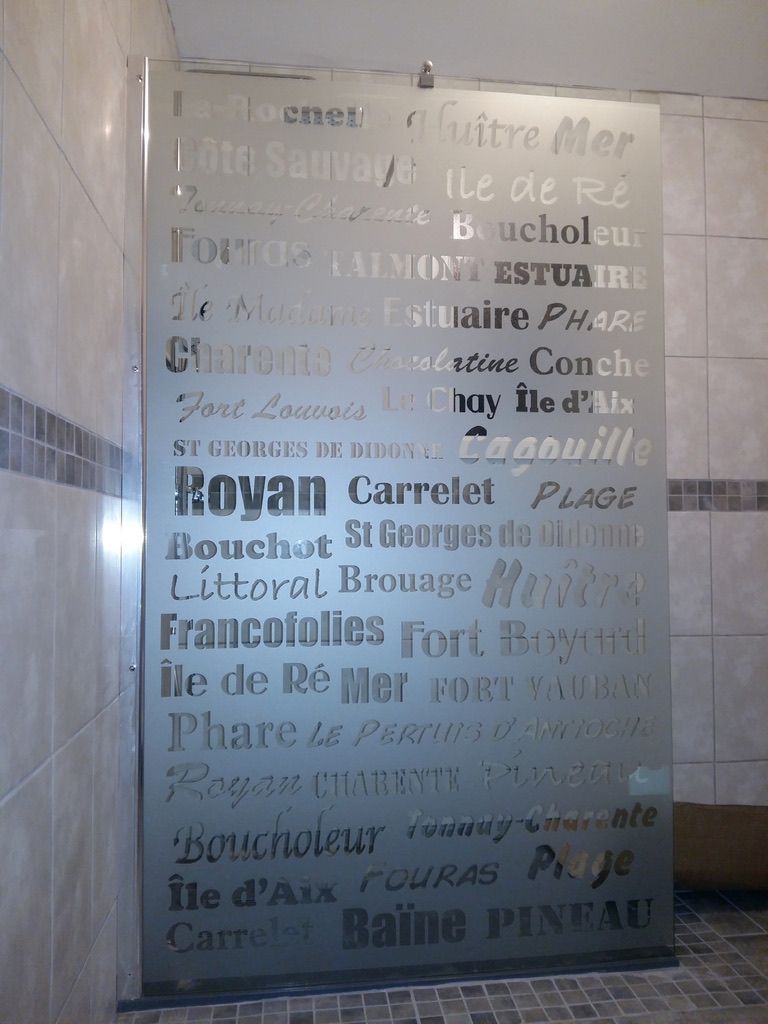 La Rochelle Huître Mer
Côte Sauvage Ile de Ré
Tonnay-Charente Boucholeur
Fouras TALMONT ESTUAIRE
Île Madame Estuaire PHARE
Charente Chocolatine Conche
Fort Louvois Le Chay Île d'Aix
ST GEORGES DE DIDONNE Cagouille
Royan Carrelet PLAGE
Bouchot St Georges de Didonne
Littoral Brouage Huître
Francofolies Fort Boyard
Île de Ré Mer FORT VAUBAN
Phare LE PERTUIS D'ANTIOCHE
Royan CHARENTE Pineau
Boucholeur Tonnay-Charente
Île d'Aix FOURAS Plage
Carrelet Baïne PINEAU